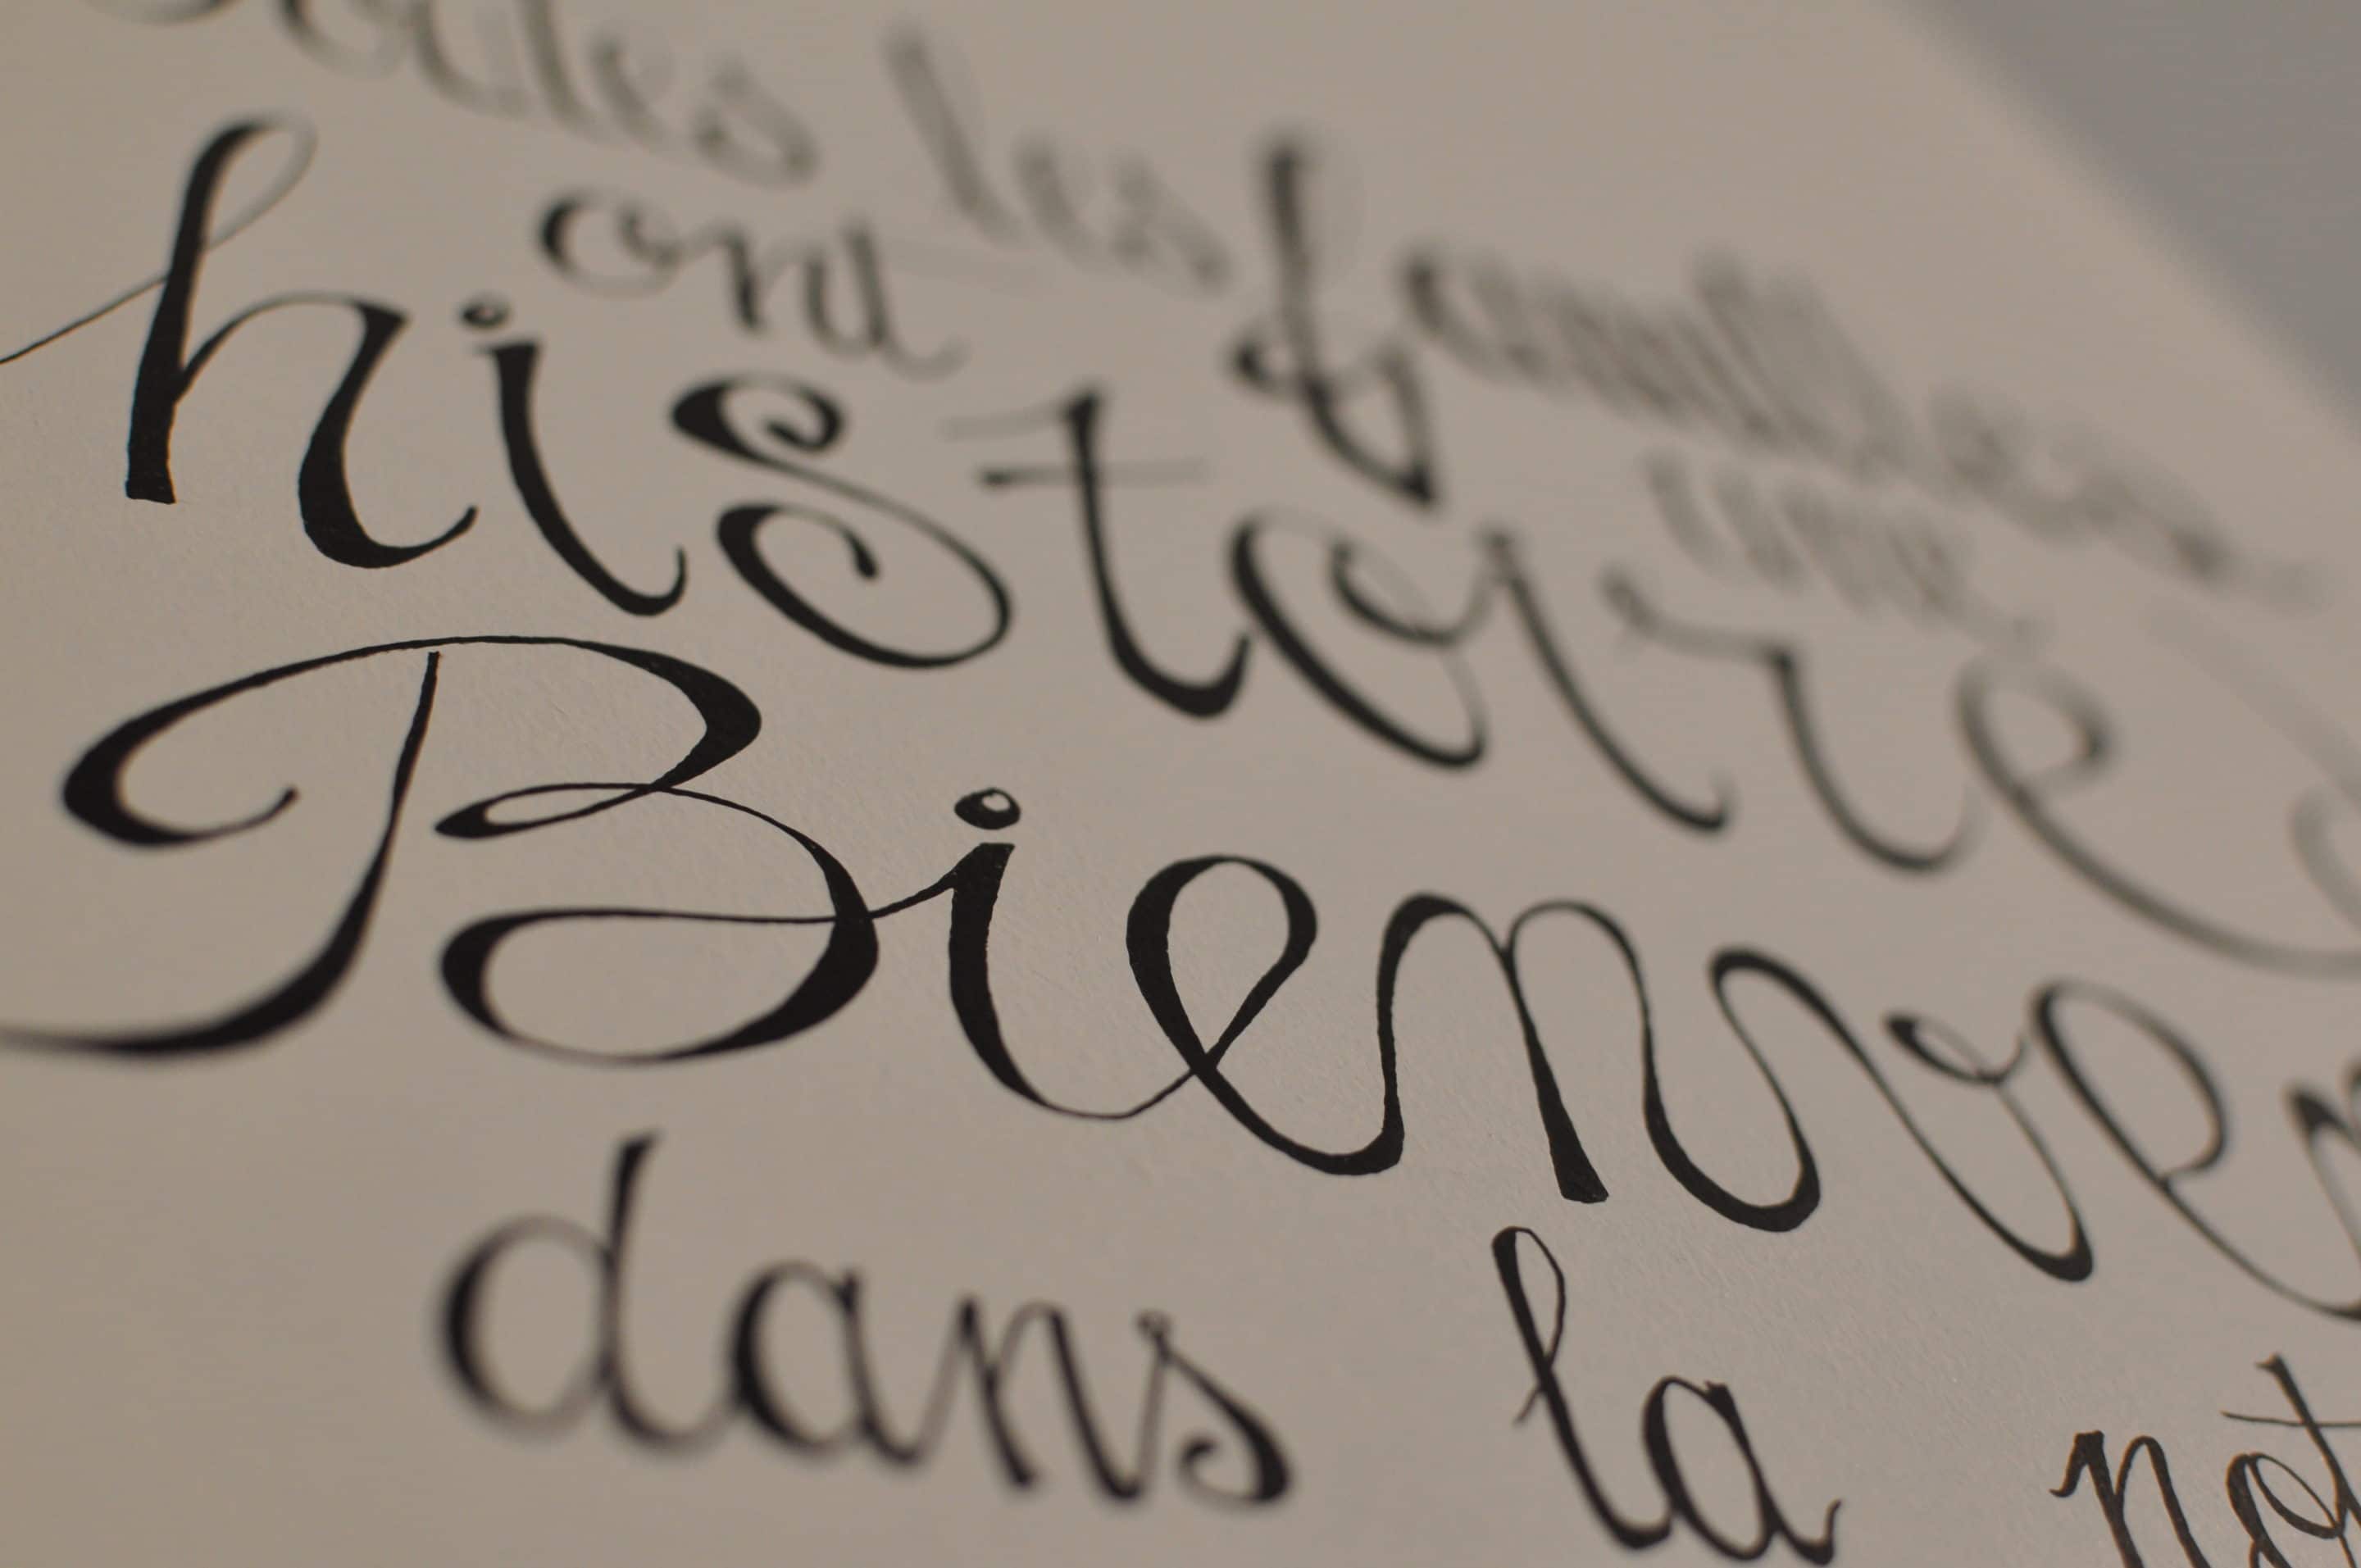 les familles
ont une
histoire
Bienven
dans la not